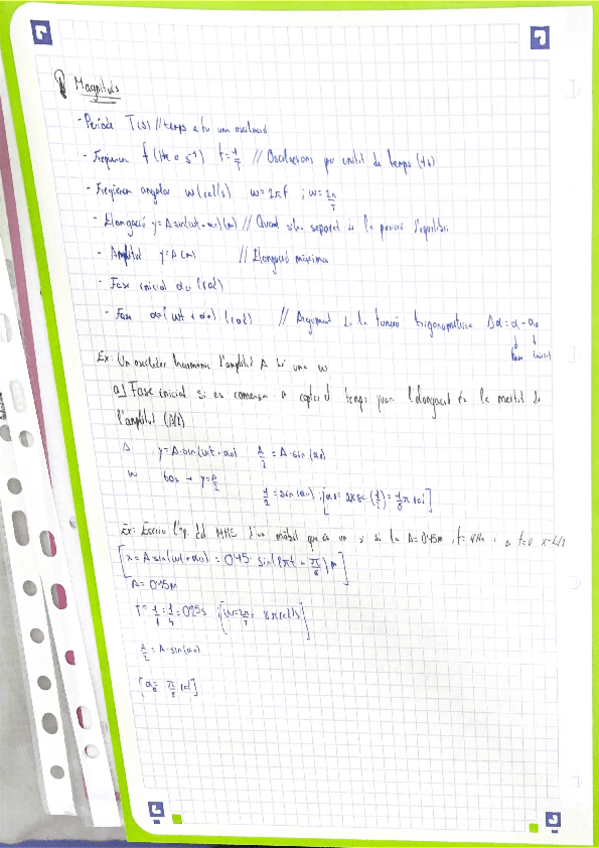 Magnituds
- Període T(s) // temps a fer una oscil·lació
- Freqüència f (Hz o s⁻¹) f=1/T // Oscilacions per unitat de temps (1s)
- Freqüència angular w(rad/s) w=2πf ; w=2π/T
- Elongació y=A·sin(wt+α₀)(m) // Quant s'ha separat de la posició d'equilibri
- Amplitud y=A(m) // Elongació màxima
- Fase inicial α₀ (rad)
- Fase α=(wt+α₀) (rad) // Argument de la funció trigonomètrica Δα=α-α₀
fase inicial
Ex: Un oscilador harmònic d'amplitud A té una w
a) Fase inicial si es comença a captar el temps quan l'elongació és la meitat de
l'amplitud (A/2)
A y=A·sin(wt+α₀) A/2=A·sin(α₀)
w t=0s → y=A/2
1/2=sin(α₀) ; [α₀= (1/2)=1/6π rad]
Ex: Escriu l'eq del MHS d'un mòbil que A=0'45m, f=4Hz t=0 x=A/2
[x=A·sin(wt+α₀)=0'45·sin(8πt+π/6)m]
A=0'45m
T=1/f=1/4=0'25s ; [w=2π/T=8πrad/s]
A/2=A·sin(α₀)
[α₀=π/6 rad]